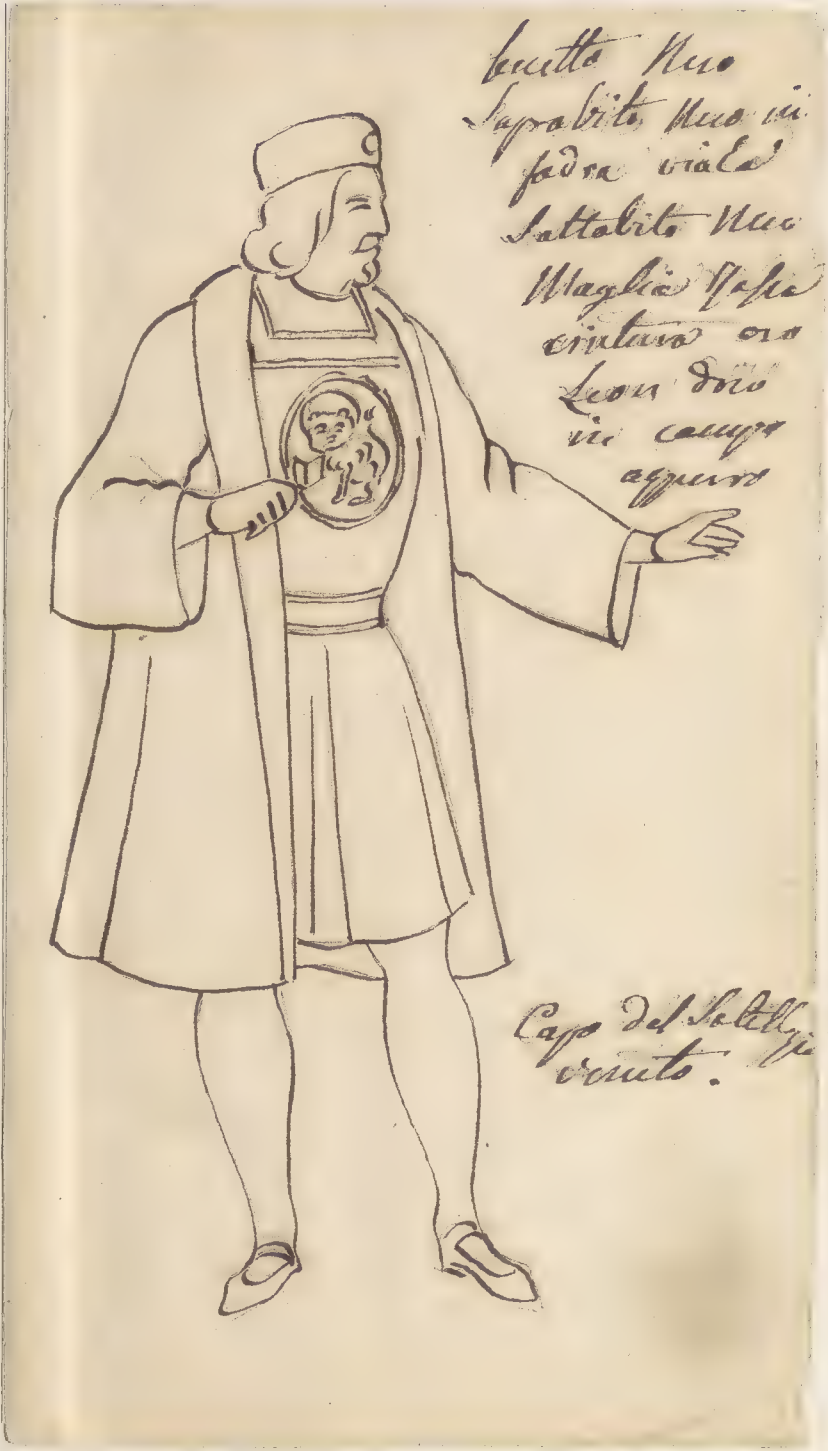 beretta Nero
Soprabito Nero in
fodra viola
Sottabito Nero
Maglia Rossa
cintura oro
Leon d'oro
in campo
azzurro
Capo del
veneto.